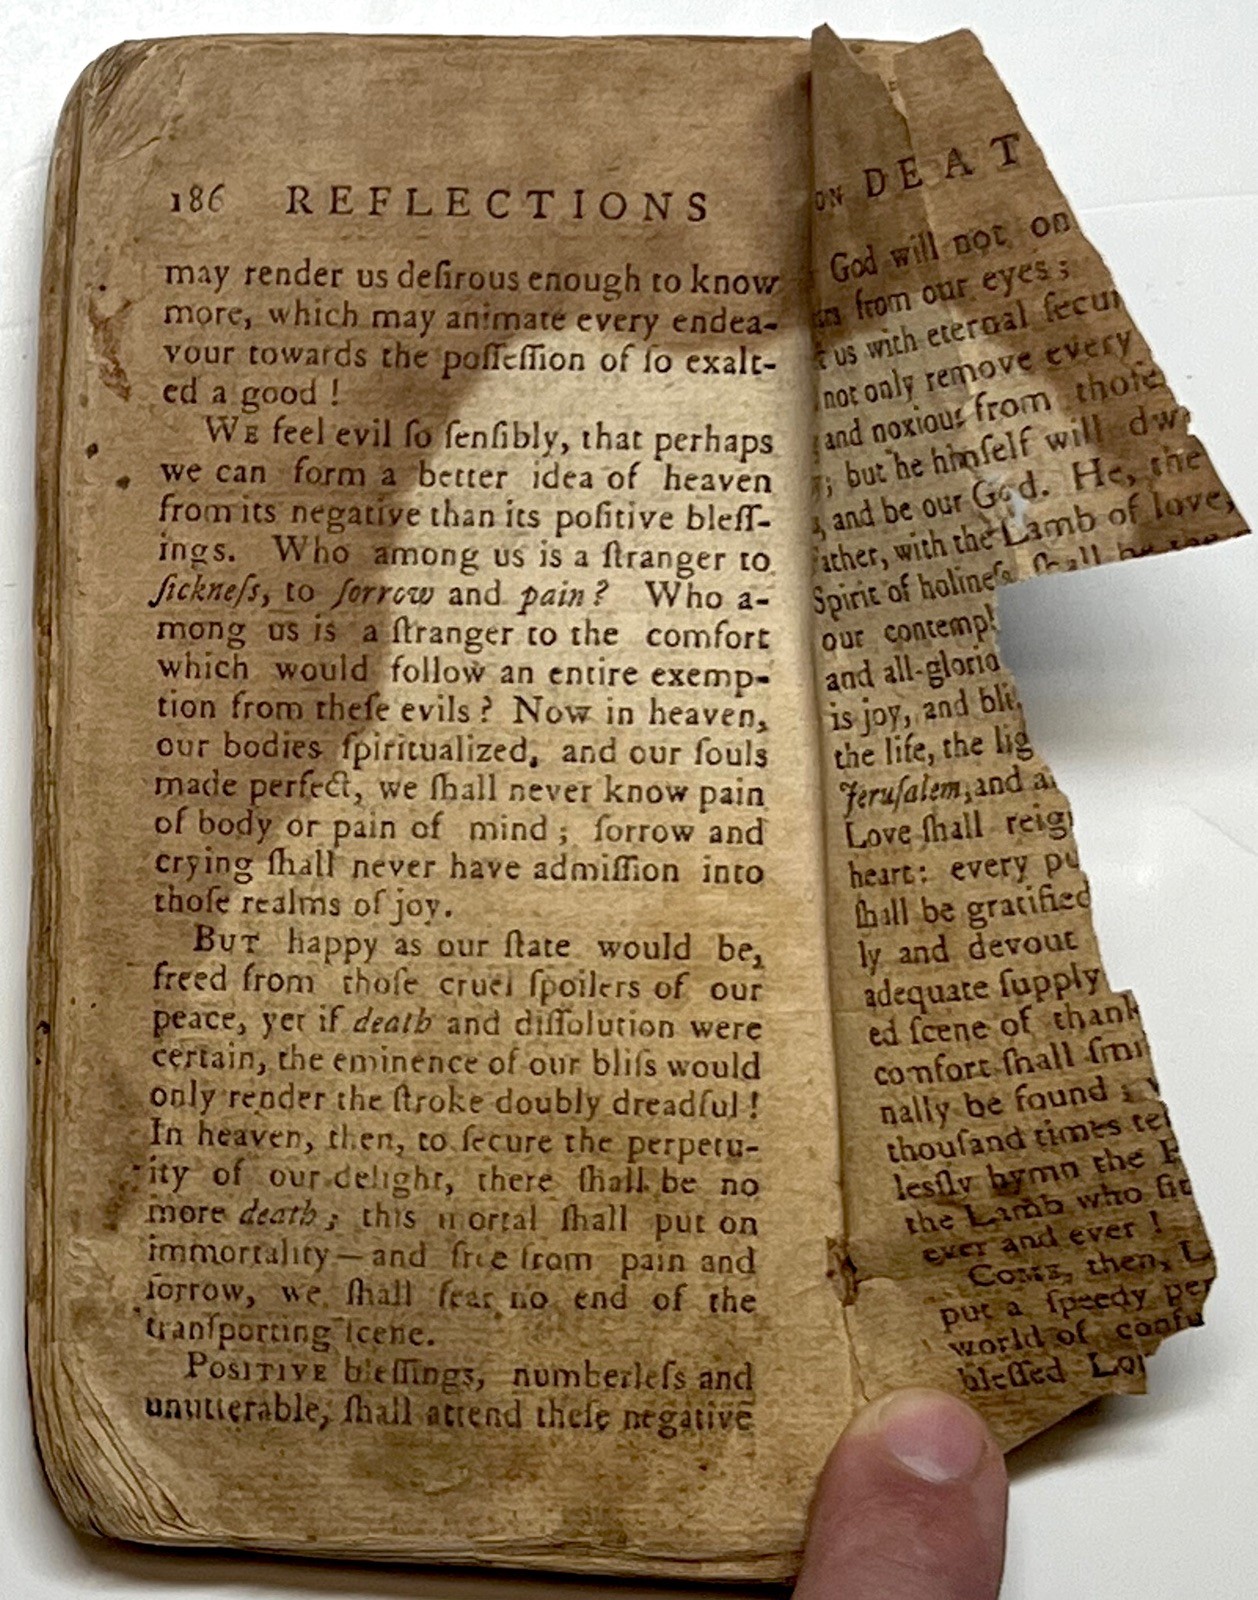 186 REFLECTIONS
may render us deſirous enough to know
more, which may animate every endea-
vour towards the poſſeſſion of ſo exalt-
ed a good !
WE feel evil ſo ſenſibly, that perhaps
we can form a better idea of heaven
from its negative than its poſitive bleſſ-
ings. Who among us is a ſtranger to
ſickneſs, to ſorrow and pain? Who a-
mong us is a ſtranger to the comfort
which would follow an entire exemp-
tion from theſe evils ? Now in heaven,
our bodies ſpiritualized, and our ſouls
made perfect, we ſhall never know pain
of body or pain of mind ; ſorrow and
crying ſhall never have admiſſion into
thoſe realms of joy.
BUT happy as our ſtate would be,
freed from thoſe cruel ſpoilers of our
peace, yet if death and diſſolution were
certain, the eminence of our bliſs would
only render the ſtroke doubly dreadful !
In heaven, then, to ſecure the perpetu-
ity of our delight, there ſhall be no
more death ; this mortal ſhall put on
immortality—and free from pain and
ſorrow, we ſhall fear no end of the
tranſporting ſcene.
POSITIVE bleſſings, numberleſs and
unutterable, ſhall attend theſe negative
ON DEAT
God will not on
from our eyes ;
us with eternal ſecur
not only remove every
and noxious from thoſe
; but he himſelf will dw
, and be our God. He, the
ather, with the Lamb of love,
Spirit of holineſs ſhall be the
our contempl
and all-glorio
is joy, and bli
the life, the lig
Jeruſalem, and a
Love ſhall reig
heart: every pu
ſhall be gratified
ly and devout
adequate ſupply
ed ſcene of thank
comfort ſhall ſmi
nally be found ;
thouſand times te
leſſly hymn the
the Lamb who ſit
ever and ever !
COME, then, L
put a ſpeedy per
world of confu
bleſſed Lor